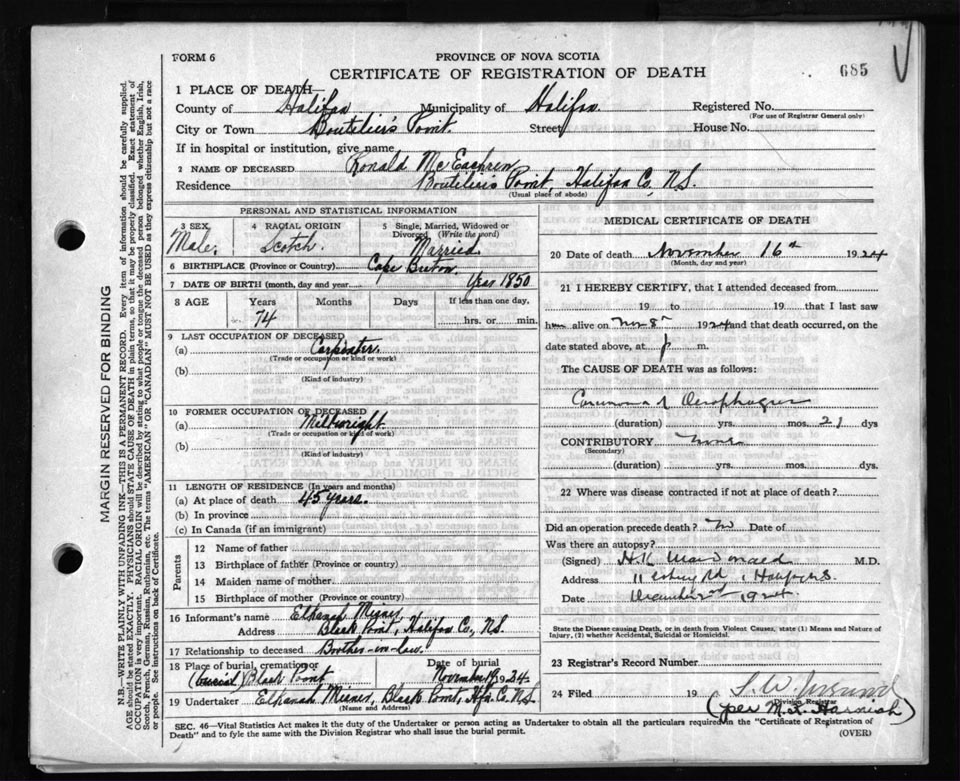 FORM 6
PROVINCE OF NOVA SCOTIA
CERTIFICATE OF REGISTRATION OF DEATH
685
1 PLACE OF DEATH—
County of Halifax Municipality of Halifax Registered No.
(For use of Registrar General only)
City or Town Boutelier's Point. Street House No.
If in hospital or institution, give name
2 NAME OF DECEASED Ronald McEachren
Residence Boutelier's Point Halifax Co. N.S.
(Usual place of abode)
PERSONAL AND STATISTICAL INFORMATION
3 SEX Male.
4 RACIAL ORIGIN Scotch.
5 Single, Married, Widowed or Divorced (Write the word) Married
6 BIRTHPLACE (Province or Country) Cape Breton.
7 DATE OF BIRTH (month, day and year) Year 1850
8 AGE Years Months Days If less than one day,
74 hrs. or min.
9 LAST OCCUPATION OF DECEASED
(a) Carpenter.
(Trade or occupation or kind or work)
(b)
(Kind of industry)
10 FORMER OCCUPATION OF DECEASED
(a) Millwright.
(Trade or occupation or kind of work)
(b)
(Kind of industry)
11 LENGTH OF RESIDENCE (In years and months)
(a) At place of death 45 years.
(b) In province
(c) In Canada (if an immigrant)
Parents
12 Name of father
13 Birthplace of father (Province or country)
14 Maiden name of mother
15 Birthplace of mother (Province or country)
16 Informant's name Elkanah Misner
Address Black Point, Halifax Co., N.S.
17 Relationship to deceased Brother-in-law.
18 Place of burial, cremation or Date of burial
(burial) Black Point November 19, 1924
19 Undertaker Elkanah Misner, Black Point, Hfx. Co. N.S.
(Name and Address)
MEDICAL CERTIFICATE OF DEATH
20 Date of death November 16th 1924
(Month, day and year)
21 I HEREBY CERTIFY, that I attended deceased from
19 to 19 that I last saw
him alive on Nov 8th 1924 and that death occurred, on the
date stated above, at p m.
The CAUSE OF DEATH was as follows:
Carcinoma of Oesophagus
(duration) yrs. mos. 21 dys
CONTRIBUTORY None
(Secondary)
(duration) yrs. mos. dys.
22 Where was disease contracted if not at place of death?
Did an operation precede death? No Date of
Was there an autopsy?
(Signed) H.K. MacDonald M.D.
Address
Date 1924.
State the Disease causing Death, or in death from Violent Causes, state (1) Means and Nature of
Injury, (2) whether Accidental, Suicidal or Homicidal.
23 Registrar's Record Number
24 Filed 19
Division Registrar
(per
SEC. 46—Vital Statistics Act makes it the duty of the Undertaker or person acting as Undertaker to obtain all the particulars required in the "Certificate of Registration of
Death" and to fyle the same with the Division Registrar who shall issue the burial permit.
(OVER)
MARGIN RESERVED FOR BINDING
N.B.—WRITE PLAINLY WITH UNFADING INK—THIS IS A PERMANENT RECORD. Every item of information should be carefully supplied.
AGE should be stated EXACTLY. PHYSICIANS should STATE CAUSE OF DEATH in plain terms, so that it may be properly classified. Exact statement of
OCCUPATION is very important. RACIAL ORIGIN will be described by stating to what people or tongue the deceased person belonged, whether English, Irish,
Scotch, French, German, Russian, Ruthenian, etc. The terms "AMERICAN" OR "CANADIAN" MUST NOT BE USED as they express citizenship but not a race
or people. See instructions on back of Certificate.